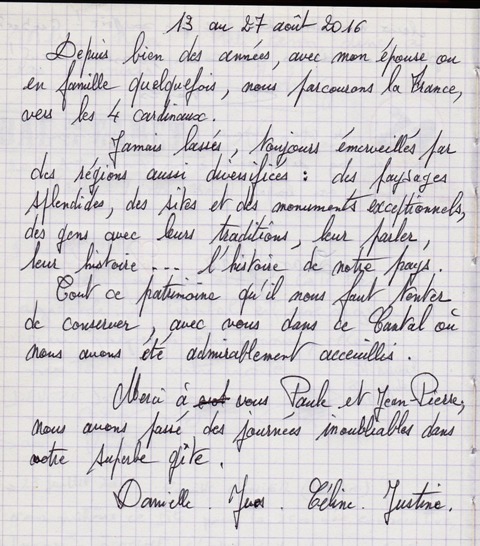 13 au 27 août 2016
Depuis bien des années, avec mon épouse ou
en famille quelquefois, nous parcourons la France,
vers les 4 cardinaux.
Jamais lassés, toujours émerveillés par
des régions aussi diversifiées : des paysages
splendides, des sites et des monuments exceptionnels,
des gens avec leurs traditions, leur parler,
leur histoire ... l'histoire de notre pays.
Tout ce patrimoine qu'il nous faut tenter
de conserver, avec vous dans ce Cantal où
nous avons été admirablement acceuillis.
Merci à vous Paule et Jean-Pierre,
nous avons passé des journées inoubliables dans
votre superbe gîte.
Danielle . Yves . Céline . Justine.